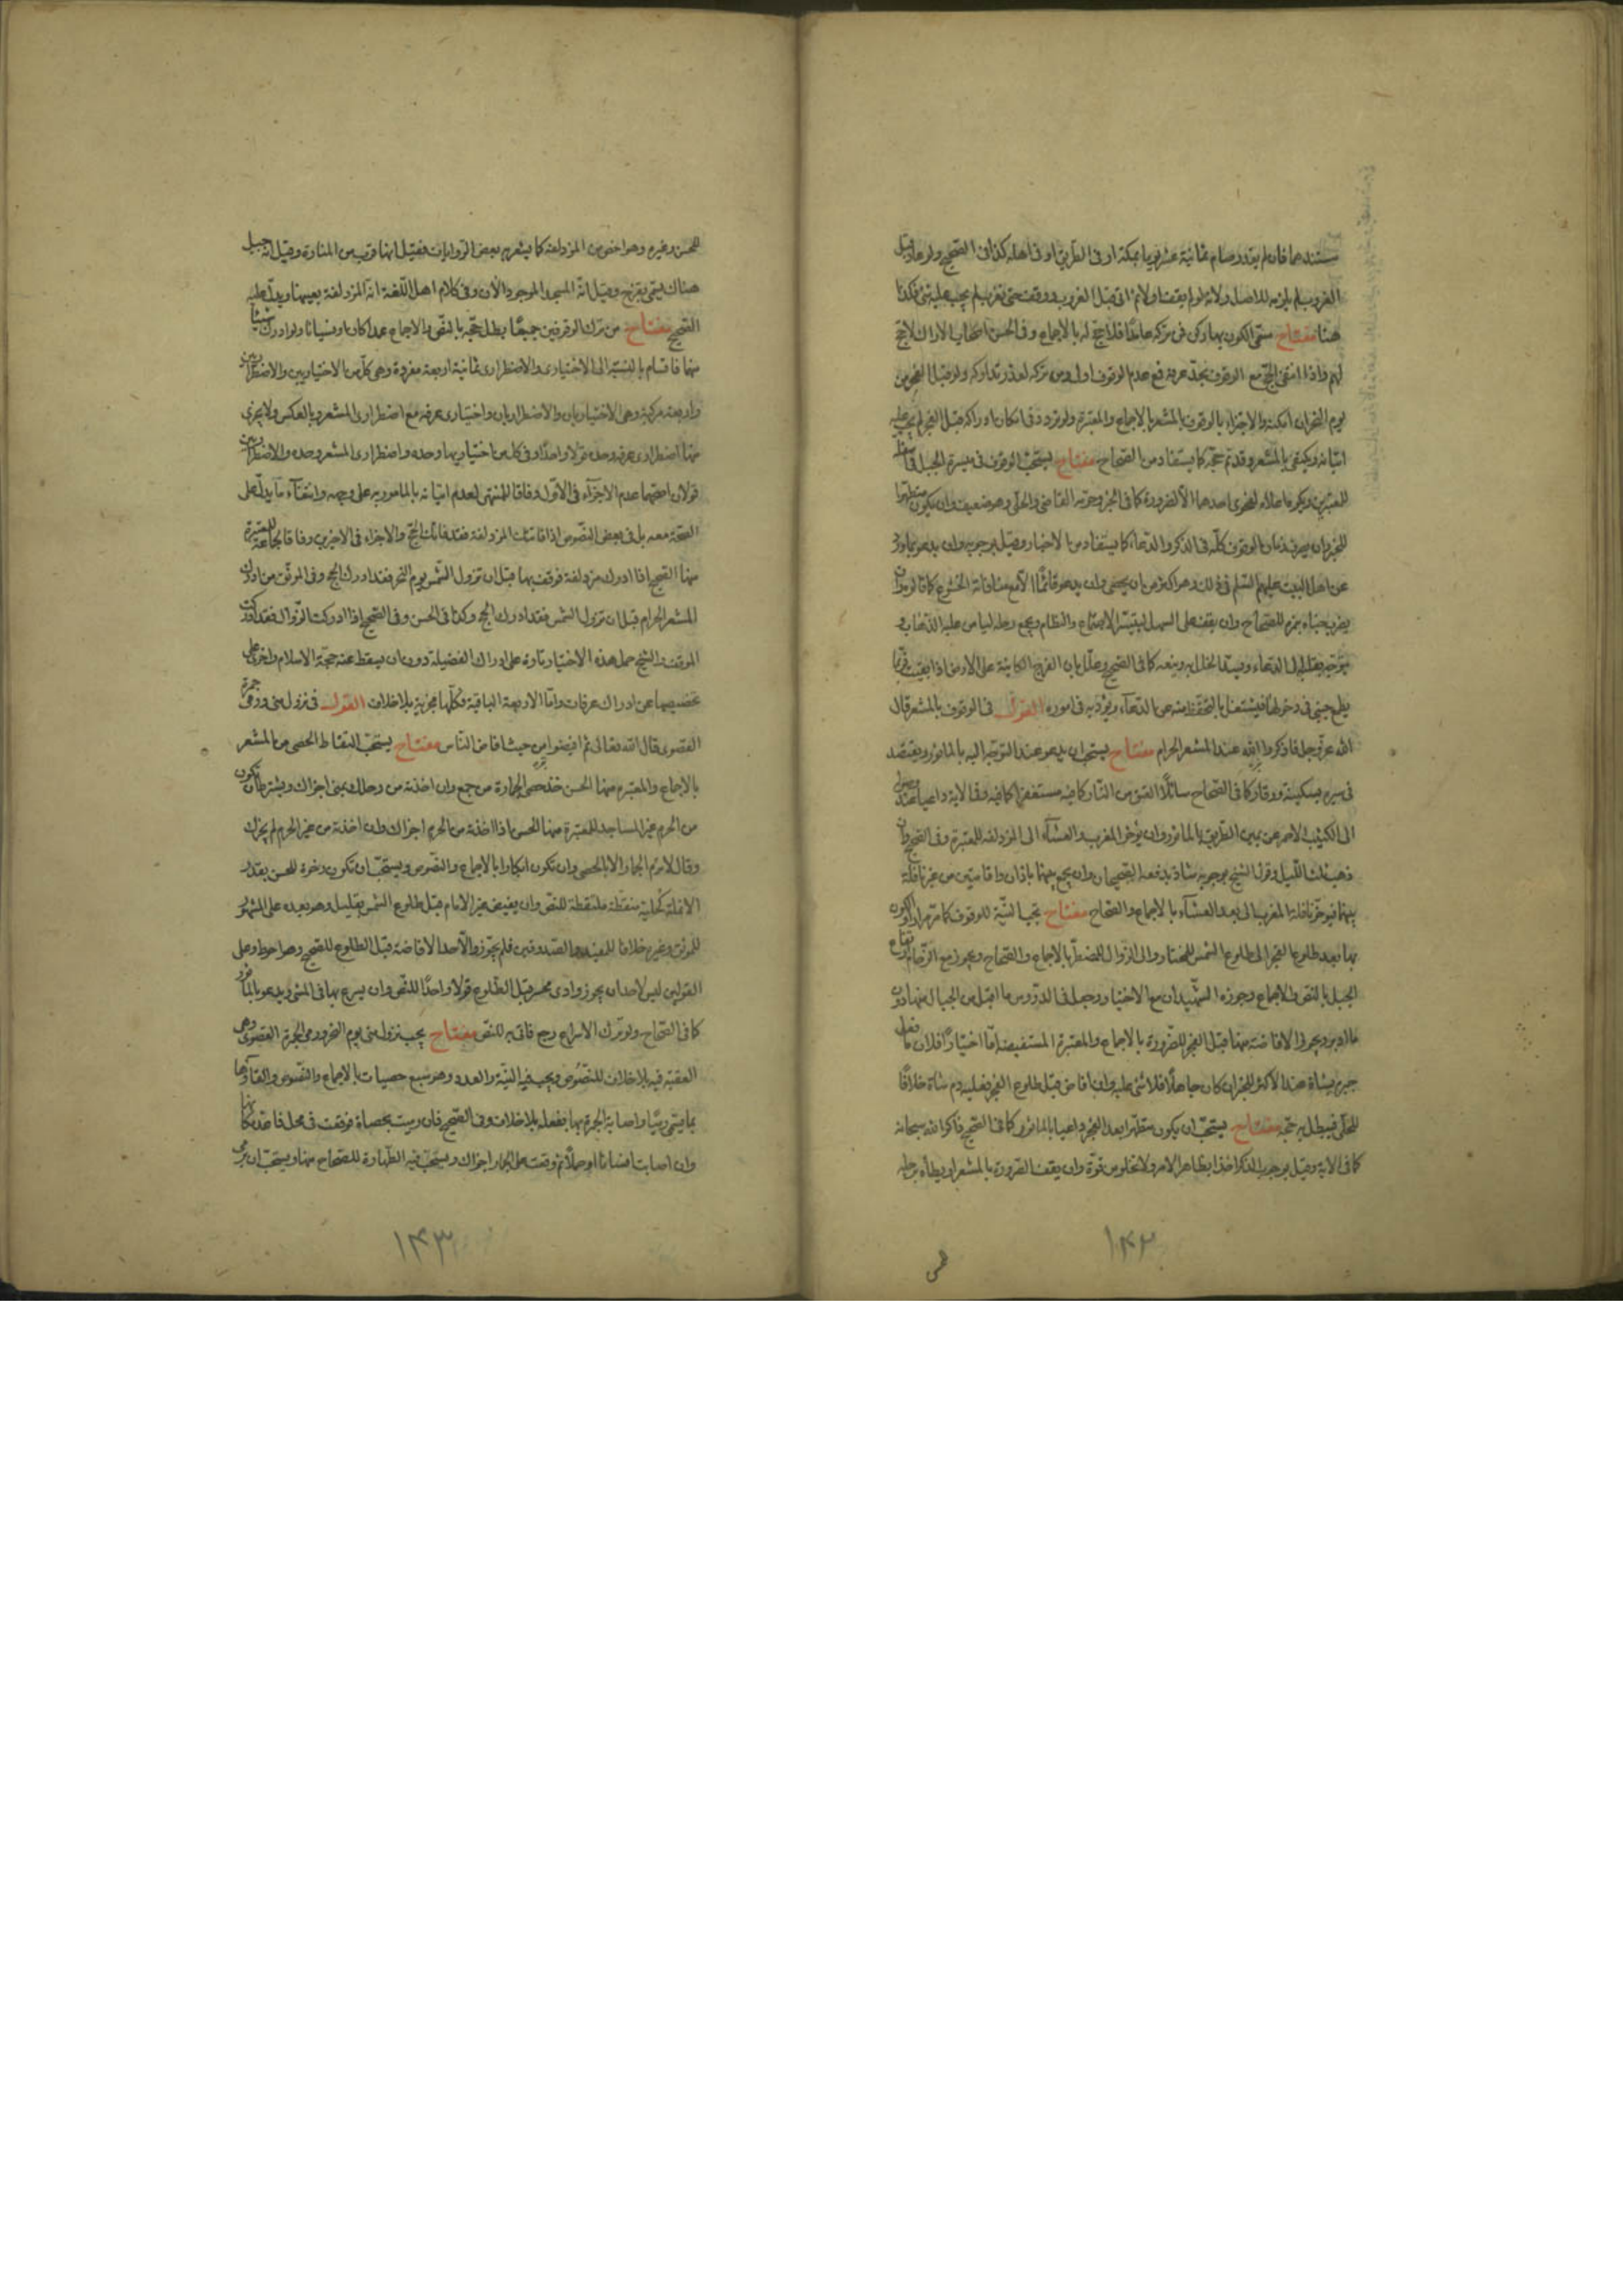 مستندهما فان لم يقدر صام ثمانية عشر يوما بمكة او فى الطريق او فى اهله كذا فى الصحيح ولو عاد قبل
الغروب لم يلزمه للاصل ولانه لو لم يقف اولا ثم اتى قبل الغروب ووقف حتى تغرب لم يجب عليه شئ فكذا
هنا مفتاح مسمى الكون بها ركن من تركه عامدا فلا حج له بالاجماع وفى الحسن اصحاب الاراك لا حج
لهم واذا انتفى الحج مع الوقوف بحد عرفة فمع عدم الوقوف اولى ومن تركه لعذر تداركه ولو قبل الفجر من
يوم النحر ان امكنه والا اجتزاء بالوقوف بالمشعر بالاجماع والمعتبرة ولو تردد فى امكان ادراكه قبل الفجر لم يجب عليه
اتيانه ويكتفى بالمشعر وقد تم حجه كما يستفاد من الصحاح مفتاح يستحب الوقوف فى ميسرة الجبل فى سفحه
للمعتبرين ويكره ما علاه لفحوى احدهما الا لضرورة كما فى الخبر وحرمه القاضى والحلى وهو ضعيف وان يكون متطهرا
للخبر وان يصرف زمان الوقوف كله فى الذكر والدعاء كما يستفاد من الاخبار وقيل بوجوبه وان يدعو بما ورد
عن اهل البيت عليهم السلم فى ذلك وهو اكثر من ان يحصى وان يدعو قائما الا مع منافاته الخشوع كما قالوه وان
يضرب خباءه بنمرة للصحاح وان يقف على السهل ليتيسر الاجتماع والنظام ويجمع رحله ليامن عليه الذهاب و
يتوجه بقلبه الى الدعاء ويسد الخلل به وبنفسه كما فى الصحيح وعلل بان الفرج الكاينة على الارض اذا بقيت فربما
يطمع اجنبى فى دخولها فيشتغل بالتحفظ منه عن الدعاء ويؤذيه فى اموره القول فى الوقوف بالمشعر قال
الله عز وجل فاذكروا الله عند المشعر الحرام مفتاح يستحب ان يدعو عند التوجه اليه بالماثور ويقتصد
فى سيره بسكينة ووقار كما فى الصحاح سائلا العتق من النار كما فيه مستغفرا كما فيه وفى الاية داعيا عند وصوله
الى الكثيب الاحمر عن يمين الطريق بالماثور وان يؤخر المغرب والعشاء الى المزدلفة للمعتبرة وفى الصحيح وان
ذهب ثلث الليل وقول الشيخ بوجوبه شاذ يدفعه الصحيحان وان يجمع بينهما باذان واقامتين من غير نافلة
بينهما فيؤخر نافلة المغرب الى بعد العشاء بالاجماع والصحاح مفتاح يجب النية للوقوف كما مر مرارا والكون
بها فيما بعد طلوع الفجر الى طلوع الشمس للمختار والى الزوال للمضطر بالاجماع والصحاح ويجوز مع الزحام ارتفاع
الجبل بالنص والاجماع وجوزه الشهيدان مع الاختيار وجعل فى الدروس ما اقبل من الجبال منها دون
ما ادبر ويجوز الافاضة منها قبل الفجر للضرورة بالاجماع والمعتبرة المستفيضة اما اختيارا فلا فان فعل
جبره بشاة عند الاكثر للخبر ان كان جاهلا فلا شئ عليه وان افاض قبل طلوع الفجر فعليه دم شاة خلافا
للحلى فيبطل به حجه مفتاح يستحب ان يكون متطهرا بعد الفجر داعيا بالماثور كما فى الصحيح ذاكرا لله سبحانه
كما فى الاية وقيل بوجوب الذكر اخذا بظاهر الامر ولا تخلو من قوة وان يقف الصرورة بالمشعر او يطأه برجله
١٤٢
للحسن وغيره وهو اخص من المزدلفة كما يشعر به بعض الروايات فقيل انها قرب من المنارة وقيل انه جبل
هناك يسمى بقزح وقيل انه المسجد الموجود الان وفى كلام اهل اللغة انه المزدلفة بعينها ويدل عليه
الصحيح مفتاح من ترك الوقوفين جميعا بطل حجه بالنص والاجماع عمدا كان او نسيانا ولو ادرك شيئا
منها فاقسام بالنسبة الى الاختيارى والاضطرارى ثمانية اربعة مفردة وهى كل من الاختياريين والاضطراريين
واربعة مركبة وهى الاختياريان والاضطراريان واختيارى عرفة مع اضطرارى المشعر وبالعكس ولا يجزى
منها اضطرارى عرفة وحده قولا واحدا وفى كل من اختياريها وحده واضطرارى المشعر وحده والاضطراريين
قولان اصحهما عدم الاجزاء فى الاول وفاقا للمنتهى لعدم اتيانه بالمامور به على وجهه وانتفاء ما يدل على
الصحة معه بل فى بعض النصوص اذا فاتتك المزدلفة فقد فاتك الحج والاجزاء فى الاخيرين وفاقا لجماعة للمعتبرة
منها الصحيح اذا ادرك مزدلفة فوقف بها قبل ان تزول الشمس يوم النحر فقد ادرك الحج وفى الموثق من ادرك
المشعر الحرام قبل ان تزول الشمس فقد ادرك الحج وكذا فى الحسن وفى الصحيح اذا ادركت الزوال فقد ادركت
الموقف والشيخ حمل هذه الاخبار تارة على ادراك الفضيلة دون ان يسقط عنه حجة الاسلام واخرى على
تخصيصها بمن ادرك عرفات واما الاربعة الباقية فكلها مجزية بلا خلاف القول فى نزول منى ورمى جمرة
القصوى قال الله تعالى ثم افيضوا من حيث افاض الناس مفتاح يستحب التقاط الحصى من المشعر
بالاجماع والمعتبرة منها الحسن خذ حصى الجمارة من جمع وان اخذته من رحلك بمنى اجزاك ويشترط ان تكون
من الحرم غير المساجد للمعتبرة منها الحسن اذا اخذته من الحرم اجزاك وان اخذته من غير الحرم لم يجزك
وقال لا ترم الجمار الا بالحصى وان تكون ابكارا بالاجماع والنصوص ويستحب ان تكون رخوة للحسن بقدر
الانملة كحلية منقطة ملتقطة للنص وان يفيض غير الامام قبل طلوع الشمس بقليل وهو بعده على المشهور
للموثق وغيره خلافا للمفيد والصدوقين فلم يجوزوا لاحد الافاضة قبل الطلوع للصحيح وهو احوط وعلى
القولين ليس لاحد ان يجوز وادى محسر قبل الطلوع قولا واحدا للنص وان يسرع بها فى المشى ويدعو بالماثور
كما فى الصحاح ولو ترك الاسراع رجع فاتى به للنص مفتاح يجب نزول منى يوم النحر ورمى الجمرة القصوى وهى
العقبة فيه بلا خلاف للنصوص ويجب فيه النية والعدد وهو سبع حصيات بالاجماع والنصوص والقاؤها
بما يسمى رميا واصابة الجمرة بها بفعله بلا خلاف وفى الصحيح فان رميت بحصاة فوقعت فى محل فاعد مكانها
وان اصابت انسانا او جملا ثم وقعت على الجمار اجزاك ويستحب فيه الطهارة للصحاح منها ويستحب ان يرمى
١٤٣